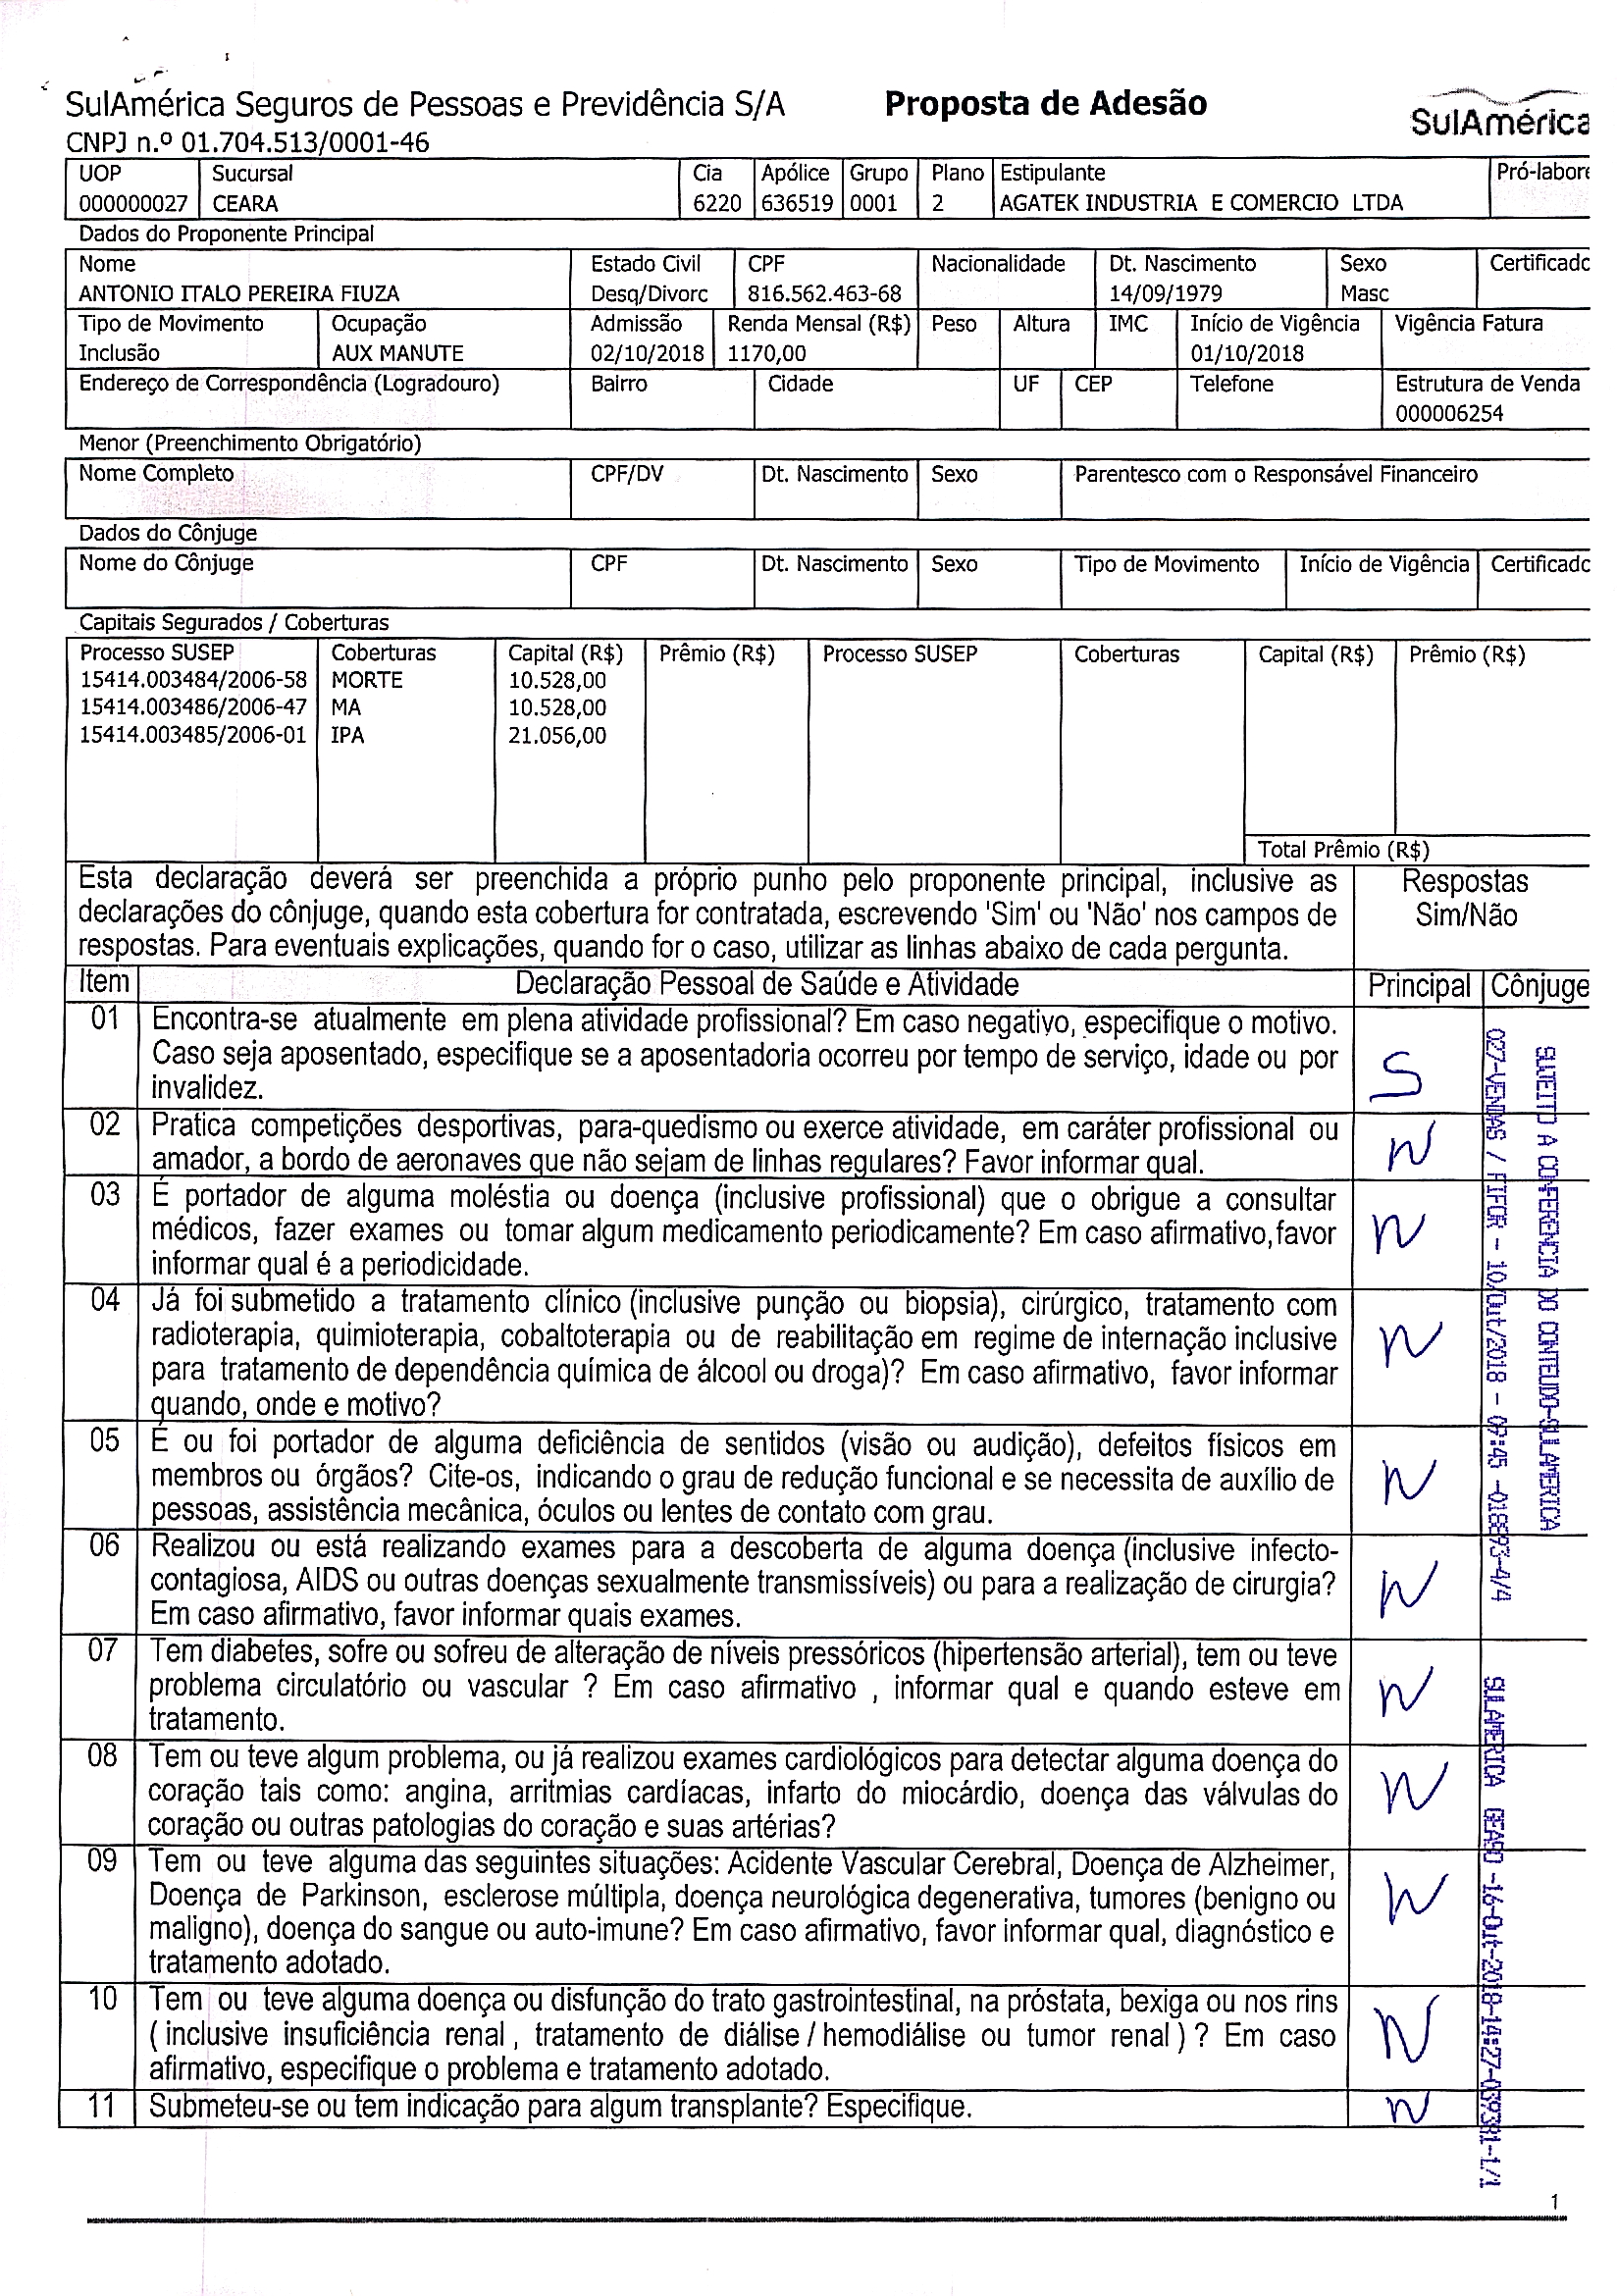 SulAmérica Seguros de Pessoas e Previdência S/A Proposta de Adesão SulAmérica
CNPJ n.º 01.704.513/0001-46
UOP Sucursal Cia Apólice Grupo Plano Estipulante Pró-labore
000000027 CEARA 6220 636519 0001 2 AGATEK INDUSTRIA E COMERCIO LTDA
Dados do Proponente Principal
Nome Estado Civil CPF Nacionalidade Dt. Nascimento Sexo Certificado
ANTONIO ITALO PEREIRA FIUZA Desq/Divorc 816.562.463-68 14/09/1979 Masc
Tipo de Movimento Ocupação Admissão Renda Mensal (R$) Peso Altura IMC Início de Vigência Vigência Fatura
Inclusão AUX MANUTE 02/10/2018 1170,00 01/10/2018
Endereço de Correspondência (Logradouro) Bairro Cidade UF CEP Telefone Estrutura de Venda
000006254
Menor (Preenchimento Obrigatório)
Nome Completo CPF/DV Dt. Nascimento Sexo Parentesco com o Responsável Financeiro
Dados do Cônjuge
Nome do Cônjuge CPF Dt. Nascimento Sexo Tipo de Movimento Início de Vigência Certificado
Capitais Segurados / Coberturas
Processo SUSEP Coberturas Capital (R$) Prêmio (R$) Processo SUSEP Coberturas Capital (R$) Prêmio (R$)
15414.003484/2006-58 MORTE 10.528,00
15414.003486/2006-47 MA 10.528,00
15414.003485/2006-01 IPA 21.056,00
Total Prêmio (R$)
Esta declaração deverá ser preenchida a próprio punho pelo proponente principal, inclusive as Respostas
declarações do cônjuge, quando esta cobertura for contratada, escrevendo 'Sim' ou 'Não' nos campos de Sim/Não
respostas. Para eventuais explicações, quando for o caso, utilizar as linhas abaixo de cada pergunta.
Item Declaração Pessoal de Saúde e Atividade Principal Cônjuge
01 Encontra-se atualmente em plena atividade profissional? Em caso negativo, especifique o motivo.
Caso seja aposentado, especifique se a aposentadoria ocorreu por tempo de serviço, idade ou por S
invalidez.
02 Pratica competições desportivas, para-quedismo ou exerce atividade, em caráter profissional ou N
amador, a bordo de aeronaves que não sejam de linhas regulares? Favor informar qual.
03 É portador de alguma moléstia ou doença (inclusive profissional) que o obrigue a consultar
médicos, fazer exames ou tomar algum medicamento periodicamente? Em caso afirmativo, favor N
informar qual é a periodicidade.
04 Já foi submetido a tratamento clínico (inclusive punção ou biopsia), cirúrgico, tratamento com
radioterapia, quimioterapia, cobaltoterapia ou de reabilitação em regime de internação inclusive N
para tratamento de dependência química de álcool ou droga)? Em caso afirmativo, favor informar
quando, onde e motivo?
05 É ou foi portador de alguma deficiência de sentidos (visão ou audição), defeitos físicos em
membros ou órgãos? Cite-os, indicando o grau de redução funcional e se necessita de auxílio de N
pessoas, assistência mecânica, óculos ou lentes de contato com grau.
06 Realizou ou está realizando exames para a descoberta de alguma doença (inclusive infecto-
contagiosa, AIDS ou outras doenças sexualmente transmissíveis) ou para a realização de cirurgia? N
Em caso afirmativo, favor informar quais exames.
07 Tem diabetes, sofre ou sofreu de alteração de níveis pressóricos (hipertensão arterial), tem ou teve
problema circulatório ou vascular ? Em caso afirmativo , informar qual e quando esteve em N
tratamento.
08 Tem ou teve algum problema, ou já realizou exames cardiológicos para detectar alguma doença do
coração tais como: angina, arritmias cardíacas, infarto do miocárdio, doença das válvulas do N
coração ou outras patologias do coração e suas artérias?
09 Tem ou teve alguma das seguintes situações: Acidente Vascular Cerebral, Doença de Alzheimer,
Doença de Parkinson, esclerose múltipla, doença neurológica degenerativa, tumores (benigno ou N
maligno), doença do sangue ou auto-imune? Em caso afirmativo, favor informar qual, diagnóstico e
tratamento adotado.
10 Tem ou teve alguma doença ou disfunção do trato gastrointestinal, na próstata, bexiga ou nos rins
( inclusive insuficiência renal , tratamento de diálise / hemodiálise ou tumor renal ) ? Em caso N
afirmativo, especifique o problema e tratamento adotado.
11 Submeteu-se ou tem indicação para algum transplante? Especifique. N
SUJEITO A CONFERENCIA DO CONTEUDO-SULAMERICA
027-VENDAS / FIFOR - 10/Out/2018 - 07:45 -018893-4/4
SULAMERICA GEASO -16-Out-2018-14:27-09381-1/1
1